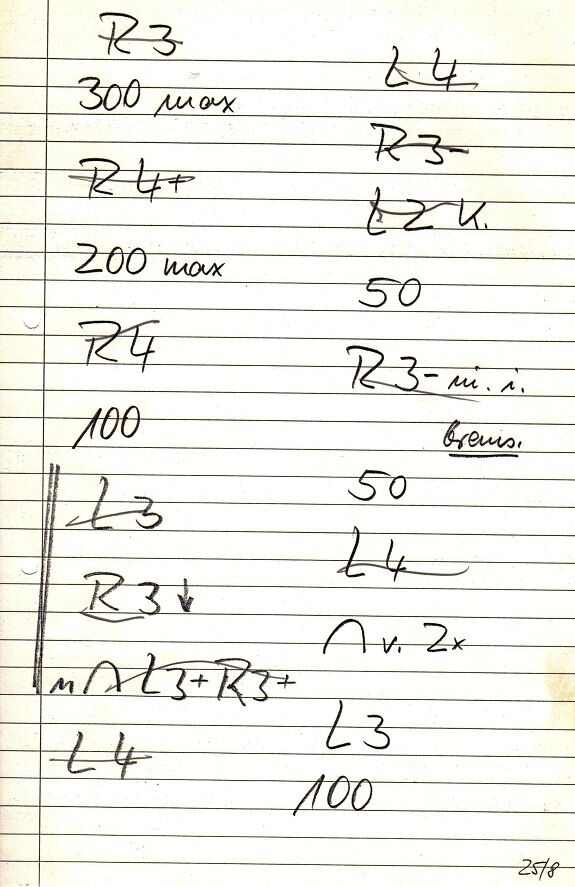 R3
300 max
R4+
200 max
R4
100
L3
R3↓
n∩ L3+R3+
L4
L4
R3-
L2 K.
50
R3- ni. i.
Brems.
50
L4
∩ v. 2x
L3
100
25/8